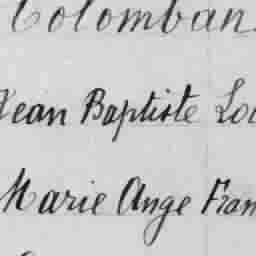 Colomban
Jean Baptiste Lou
Marie Ange Fran